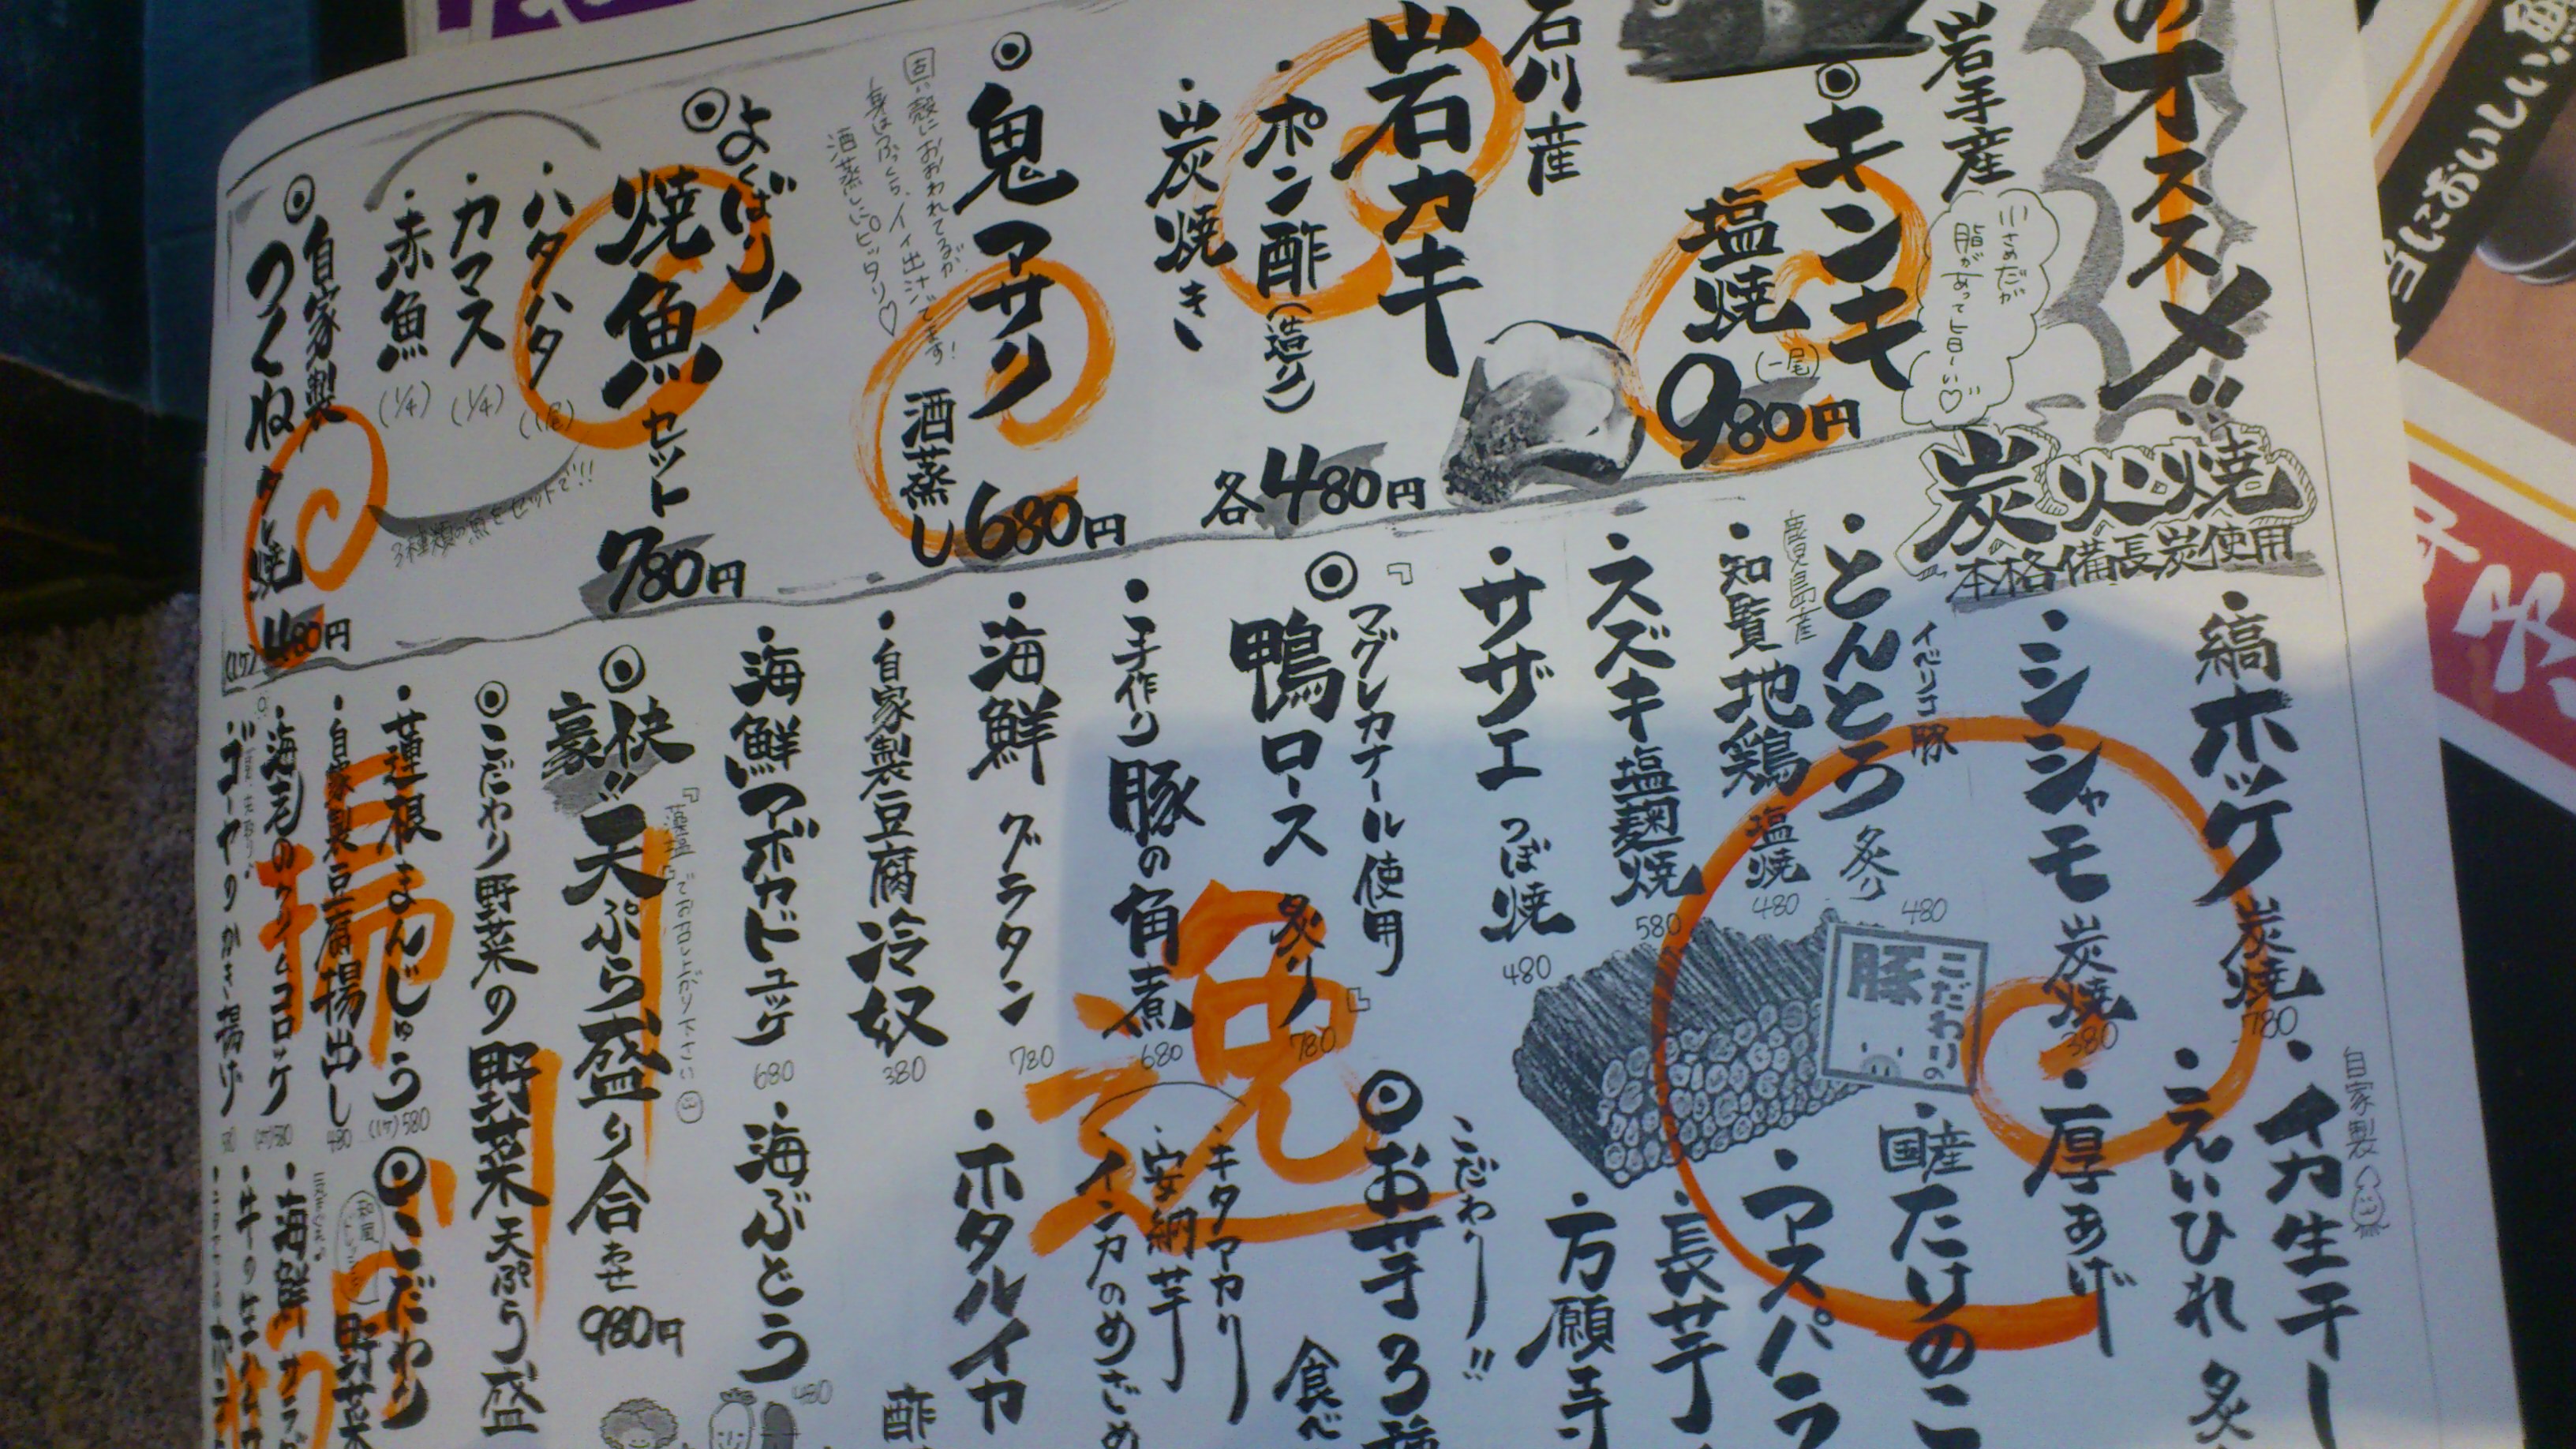 のオススメ
岩手産
小さめだが
脂があって旨〜い♡
キンキ
塩焼
(一尾)
980円
石川産
岩カキ
・ポン酢(造り)
・炭焼き
各480円
鬼アサリ
固い殻におおわれてるが、
身はぷっくら、イイ出汁でます!
酒蒸しにピッタリ♡
酒蒸し 680円
よくばり!
焼魚セット
780円
・ハタハタ(1尾)
・カマス(1/4)
・赤魚(1/4)
3種類の魚をセットで!!
自家製
つくね タレ焼
(1ケ) 480円
炭火焼
本格備長炭使用
・縞ホッケ 炭焼 780
・シシャモ 炭焼 380
イベリコ豚
・とんとろ 炙り 480
鹿児島産
・知覧地鶏 塩焼 480
・スズキ 塩麹焼 580
・サザエ つぼ焼 480
『マグレカナール使用』
鴨ロース 炙り 780
・手作り豚の角煮 680
・海鮮 グラタン 780
・自家製豆腐 冷奴 380
・海鮮アボカドユッケ 680
豪快!!天ぷら盛り合わせ
980円
『藻塩』でお召し上がり下さい
こだわり野菜の野菜天ぷら盛
・蓮根まんじゅう (1ケ)580
・自家製豆腐 揚出し 480
・海老のクリームコロッケ (2ケ)580
・ゴーヤのかき揚げ
自家製
・イカ生干し
・えいひれ 炙
・厚あげ
こだわりの
豚
・国産たけのこ
・アスパラ
・長芋
・万願寺
こだわり!!
お芋3種
食べ
・キタアカリ
・安納芋
・インカのめざめ
・ホタルイカ
酢
・海ぶどう
480
こだわり
野菜
・海鮮サラダ